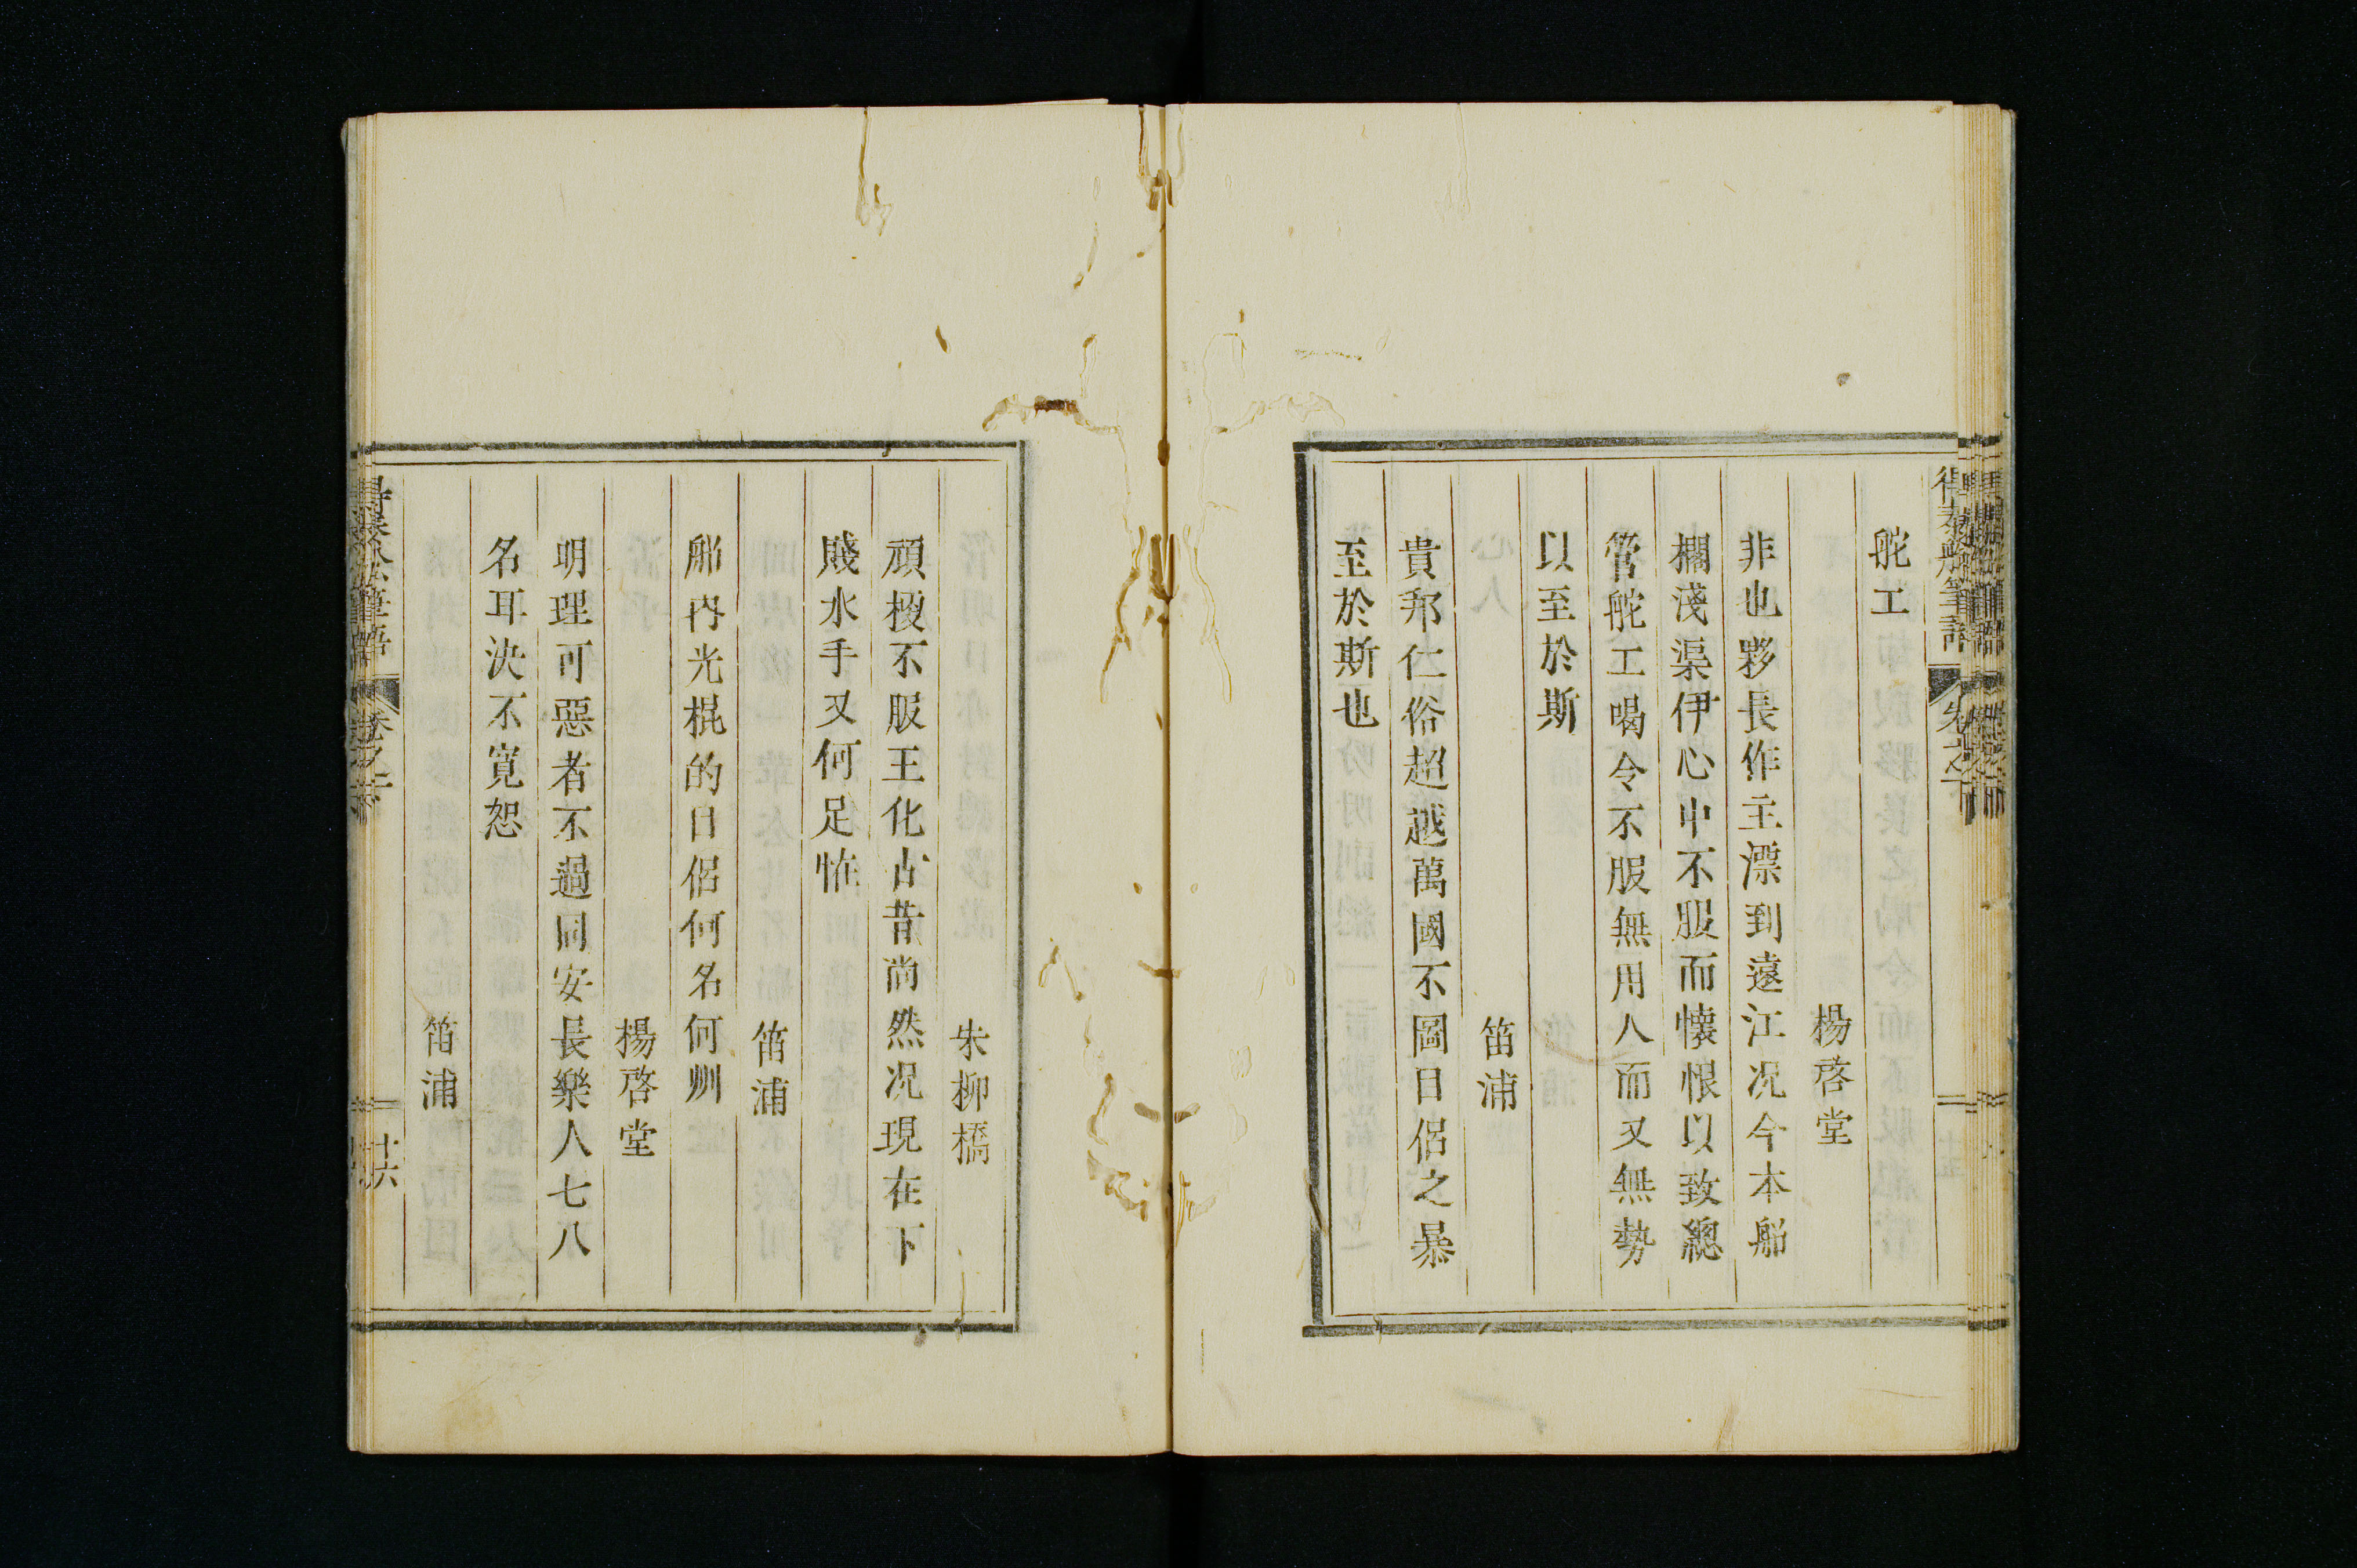 舵工
楊啓堂
非也夥長作主漂到遠江况今本船
擱淺渠伊心中不服而懷恨以致總
管舵工喝令不服無用人而又無勢
以至於斯
笛浦
貴邦仁俗超越萬國不圖日侶之暴
至於斯也
朱柳橋
頑梗不服王化古昔尚然况現在下
賤水手又何足怪
笛浦
船内光棍的日侶何名何州
楊啓堂
明理可惡者不過同安長樂人七八
名耳決不寛恕
笛浦
得泰船筆語
卷之下
十六